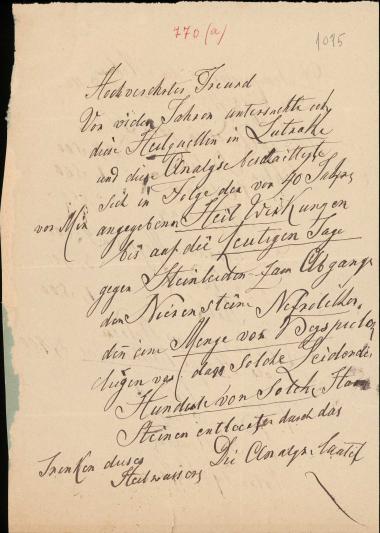 770 (a)
1095
Hochverehrter Freund
Vor vielen Jahren untersuchte ich
diese Heilquellen in Lutrake
und diese Analyse
sich in Folge der von 40 Jahre
von Mir angegebenen Heil Wirkungen
bis auf die heutigen Tage
gegen Steinleiden zum Abgange
den Nierensteine
eine Menge von Beyspielen
dass solche Leidende
Hunderte von solche
Steinen durch das
Trinken dieses Die Analyse lautet
Heilwassers